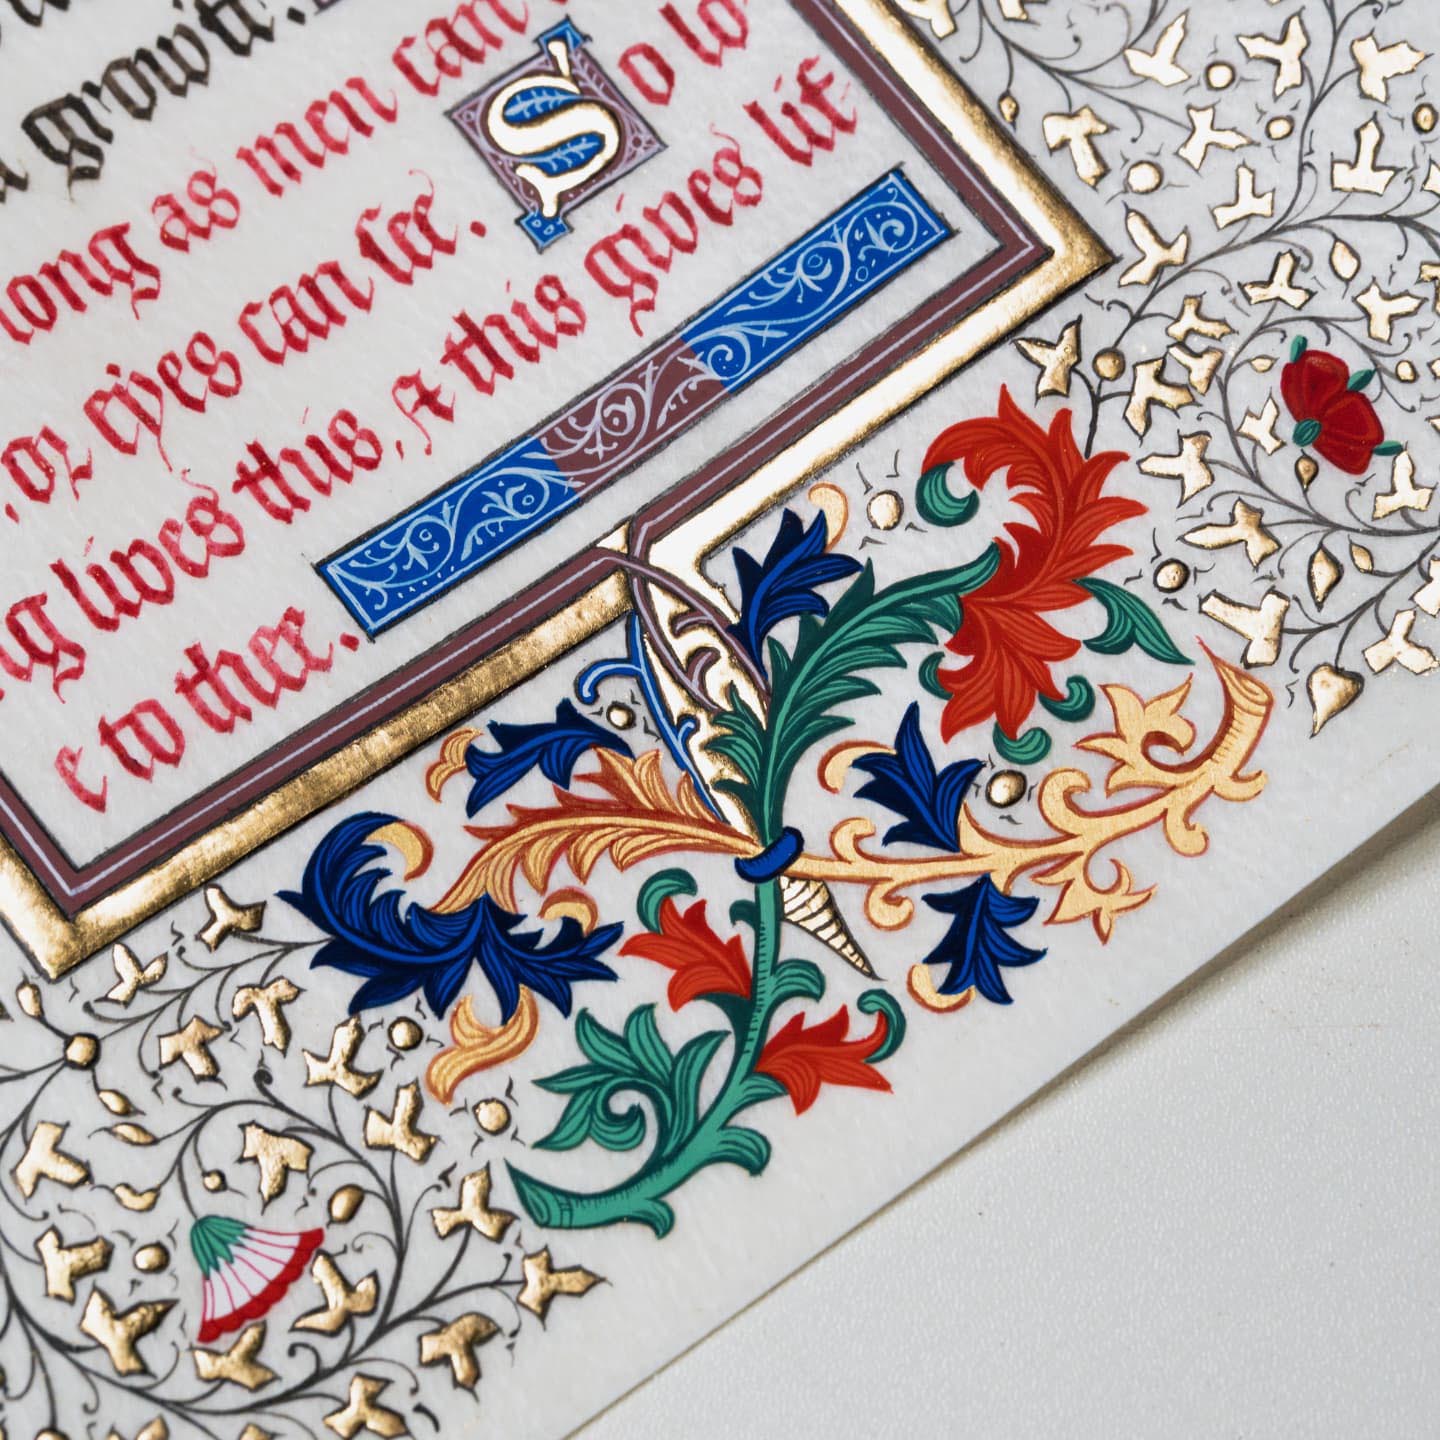 growſt.
long as men can
, or eyes can ſee. So lo
g lives this, & this gives lif
e to thee.